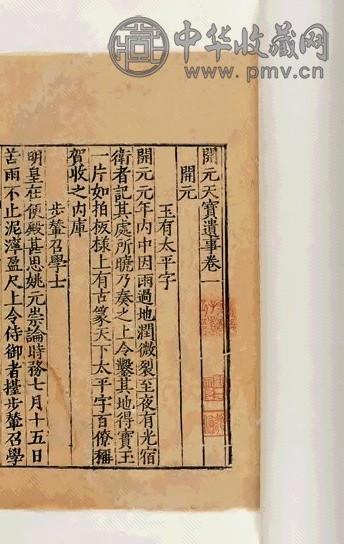 中华收藏网
www.pmv.cn
開元天寶遺事卷一
開元
玉有太平字
開元元年内中因雨過地潤微裂至夜有光宿
衛者記其處所曉乃奏之上令鑿其地得寶玉
一片如拍板樣上有古篆天下太平字百僚稱
賀收之内庫
步輦召學士
明皇在便殿甚思姚元崇論時務七月十五日
苦雨不止泥濘盈尺上令侍御者擡步輦召學